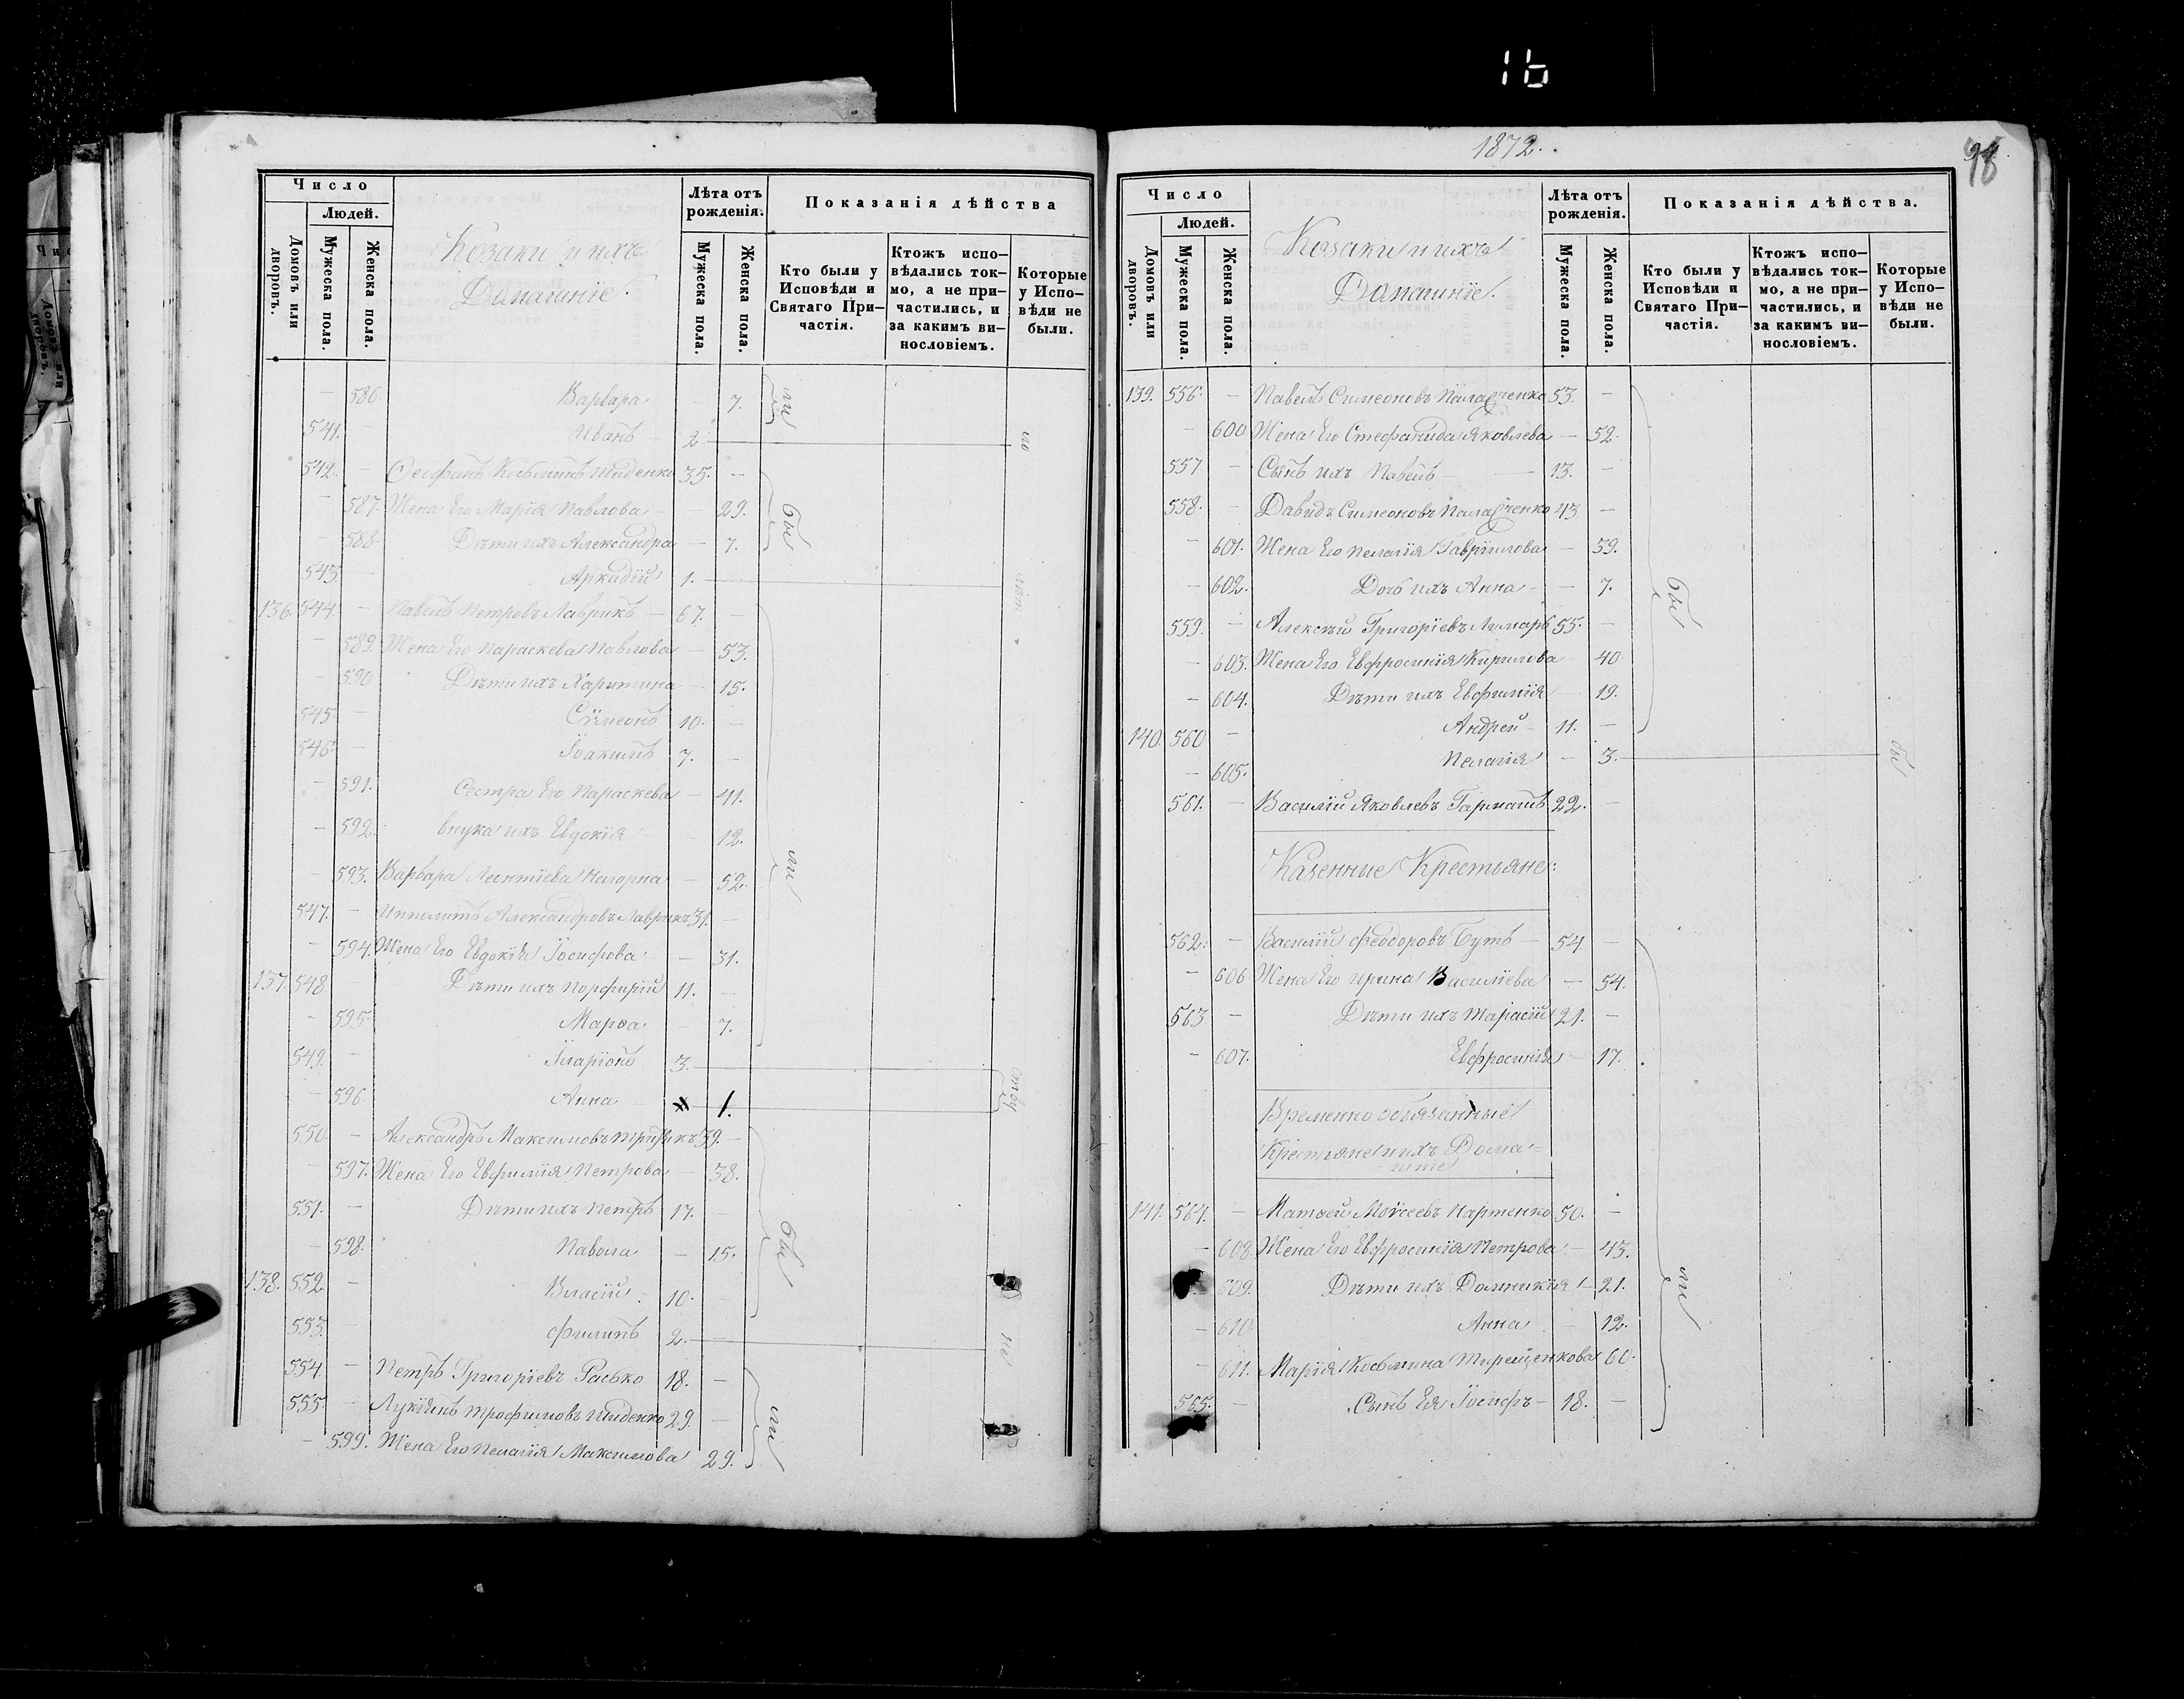 16
Число
Людей.
Домовъ или дворовъ.
Мужеска пола.
Женска пола.
Козаки и ихъ
Домашніе.
Лѣта отъ рожденія.
Мужеска пола.
Женска пола.
Показанія дѣйства
Кто были у Исповѣди и Святаго При-частія.
Ктожъ испо-вѣдались ток-мо, а не при-частились, и за какимъ ви-нословіемъ.
Которые у Испо-вѣди не были.
— 586. Варвара — 7.
541. — Иванъ — 2.
542. — Ѳеофанъ Косьминъ Шиденко 35. —
— 587. Жена Его Марія Павлова — 29.
— 588. Дѣти ихъ Александра — 7.
543. — Аркадій 1.
136. 544. — Павелъ Петровъ Лаврикъ — 67. —
— 589. Жена Его Параскева Павлова — 53.
— 590 Дѣти ихъ Харитина — 15.
545. — Сѵмеонъ 10. —
546. — Іоакимъ 7. —
— 591. Сестра Его Параскева — 41.
— 592. внука ихъ Евдокія — 12.
— 593. Варвара Леонтіева Нагорна — 52.
547. — Ипполитъ Александровъ Лаврикъ 31. —
— 594. Жена Его Евдокія Іосифова — 31.
137. 548. — Дѣти ихъ Порфирій 11. —
— 595. Марѳа — 7.
549. — Іларіонъ 3.
— 596. Анна — 1.
550. — Александръ Максимовъ 39. —
— 597. Жена Его Евфимія Петрова — 38.
551. — Дѣти ихъ Петръ 17. —
— 598. Павола — 15.
138. 552. — Власій 10. —
553. — Филипъ 2.
554. — Петръ Григоріевъ Расько 18. —
555. — Лукіянъ Трофимовъ Шиденко 29. —
— 599. Жена Его Пелагія Максимова 29.
бы
ли
бы
ли
не
ли
1872.
98
Число
Людей.
Домовъ или дворовъ.
Мужеска пола.
Женска пола.
Козаки и ихъ
Домашніе.
Лѣта отъ рожденія.
Мужеска пола.
Женска пола.
Показанія дѣйства.
Кто были у Исповѣди и Святаго При-частія.
Ктожъ испо-вѣдались ток-мо, а не при-частились, и за какимъ ви-нословіемъ.
Которые у Испо-вѣди не были.
139. 556. — Павелъ Симеоновъ 53. —
— 600 Жена Его Стефанида Яковлева — 52.
557 — Сынъ ихъ Павелъ — 13. —
558. — Давидъ Симеоновъ 43 —
— 601. Жена Его Пелагія Гавріилова — 39.
— 602. Дочь ихъ Анна — 7.
559. — Алексѣй Григоріевъ Лимарь 55. —
— 603. Жена Его Евфросинія Кирилова — 40
— 604. Дѣти ихъ Евфимія — 19.
140. 560 — Андрей 11. —
— 605. Пелагія — 3.
561. — Василій Яковлевъ Гармашъ 22. —
Казенные Крестьяне:
562. — Василій Феодоровъ Бутъ — 54 —
— 606 Жена Его Ирина Василіева — 54.
563 — Дѣти ихъ Тарасій 21. —
— 607. Евфросинія — 17.
Временно обязанные
Крестьяне и ихъ Дома=
=шніе
141. 564. — Матѳей Моѵсеевъ Нартенко 50. —
— 608. Жена Его Евфросинія Петрова — 43.
— 609. Дѣти ихъ Домникія — 21.
— 610 Анна — 12.
— 611. Марія Косьмина Терещенкова 60.
565. — Сынъ Ея Іосифъ — 18. —
бы
ли